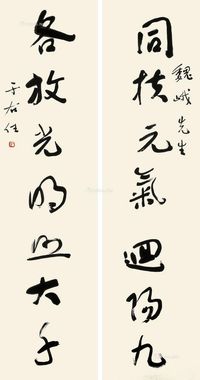 魏峨先生
同扶元氣迴陽九
各放光明照大千
于右任